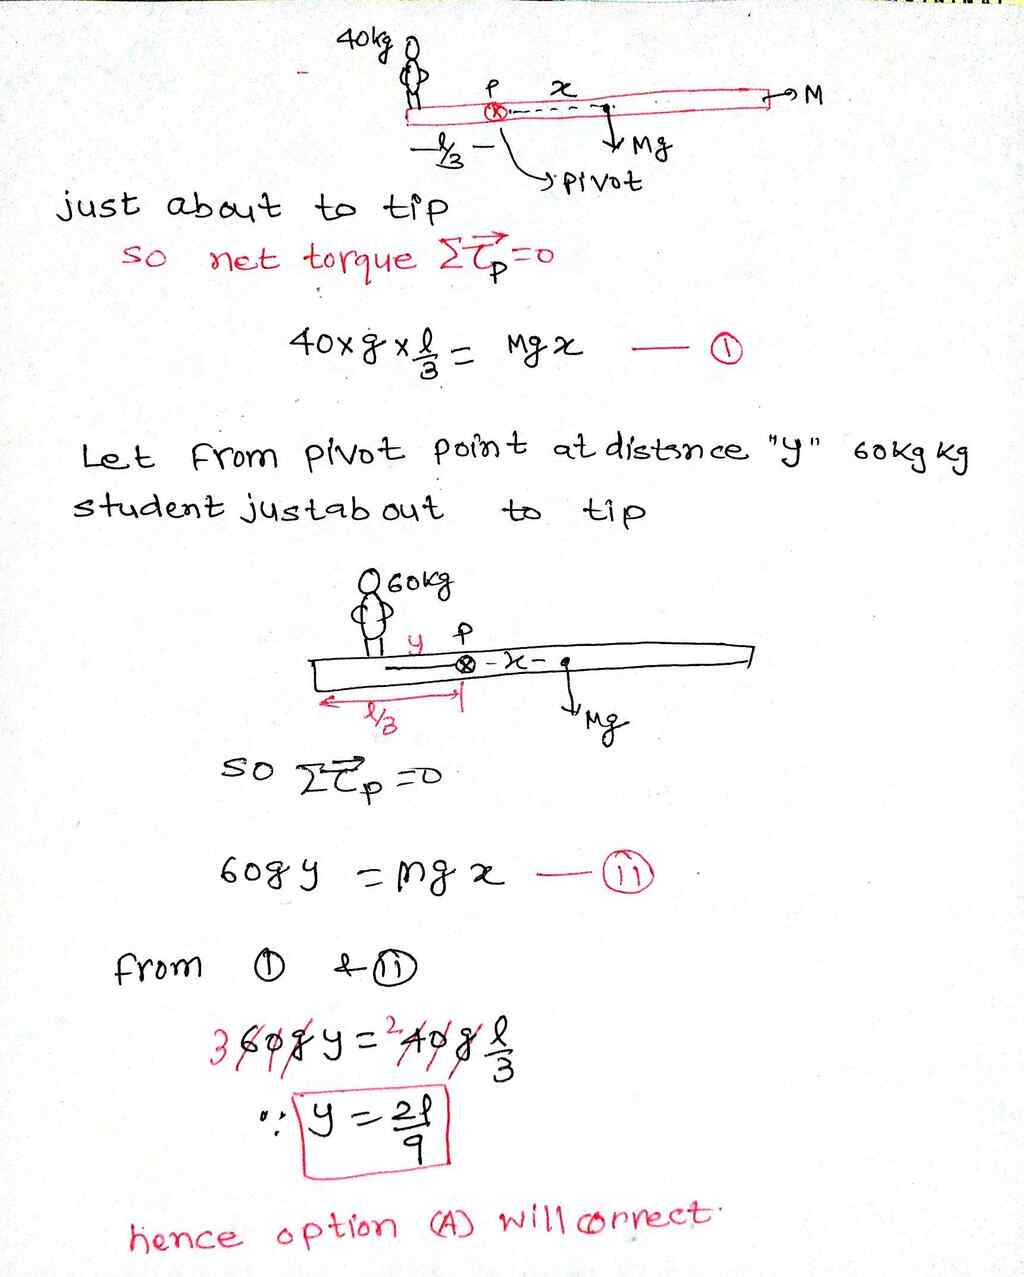 40kg
P x → M
l/3 Mg
→ pivot
just about to tip
so net torque Στ⃗p=0
40×g×l/3 = Mg x — ①
Let from pivot point at distsnce "y" 60kg kg
student justab out to tip
60kg
y P
x
l/3 Mg
so Στ⃗p=0
60g y = mg x — ⅱ
from ① & ⅱ
3 60g y = 2 40g l/3
∵ y = 2l/9
hence option (A) will correct.